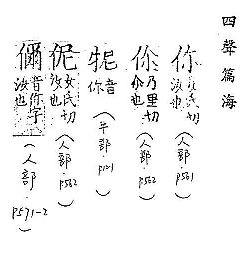 四聲篇海
你 女氏切 汝也 (人部·p561)
伱 乃里切 尒也 (人部·p562)
音你 (牛部·p101)
伲 女氏切 汝也 (人部·p562)
儞 音你字 汝也 (人部·p571-2)